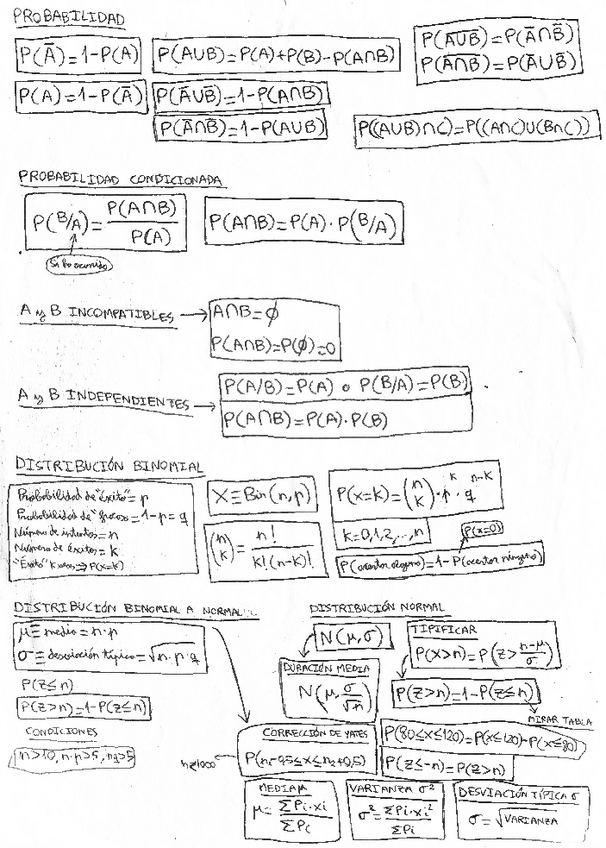 PROBABILIDAD
P(A̅)=1-P(A)
P(A∪B)=P(A)+P(B)-P(A∩B)
P(A̅∪̅B̅)=P(A̅∩B̅)
P(A̅∩̅B̅)=P(A̅∪B̅)
P(A)=1-P(A̅)
P(A̅∪B̅)=1-P(A∩B)
P(A̅∩B̅)=1-P(A∪B)
P((A∪B)∩C)=P((A∩C)∪(B∩C))
PROBABILIDAD CONDICIONADA
P(B/A)=P(A∩B)/P(A)
P(A∩B)=P(A)·P(B/A)
Si ha ocurrido
A y B INCOMPATIBLES → A∩B=∅
P(A∩B)=P(∅)=0
A y B INDEPENDIENTES → P(A/B)=P(A) o P(B/A)=P(B)
P(A∩B)=P(A)·P(B)
DISTRIBUCIÓN BINOMIAL
Probabilidad de "éxito"=p
Probabilidad de "fracaso"=1-p=q
Número de intentos=n
Número de éxitos=k
"Éxito" k veces⇒P(x=k)
X≡Bin(n,p)
(n k)=n!/k!(n-k)!
P(x=k)=(n k)·p^k·q^n-k
k=0,1,2,...,n
P(x=0)
P(acertar alguno)=1-P(acertar ninguno)
DISTRIBUCIÓN BINOMIAL A NORMAL
μ≡media=n·p
σ≡desviación típica=√n·p·q
P(Z≤n)
P(Z>n)=1-P(Z≤n)
CONDICIONES
n>10, n·p>5, nq>5
DISTRIBUCIÓN NORMAL
N(μ,σ)
TIPIFICAR
P(X>n)=P(Z>(n-μ)/σ)
DURACIÓN MEDIA
N(μ,σ/√n)
P(Z>n)=1-P(Z≤n)
MIRAR TABLA
CORRECCIÓN DE YATES
P(n₁-0,5≤x≤n₂+0,5)
P(80≤x≤120)=P(x≤120)-P(x≤80)
P(Z≤-n)=P(Z>n)
MEDIA μ
μ=ΣPi·xi/ΣPi
VARIANZA σ²
σ²=ΣPi·xi²/ΣPi
DESVIACIÓN TÍPICA σ
σ=√VARIANZA